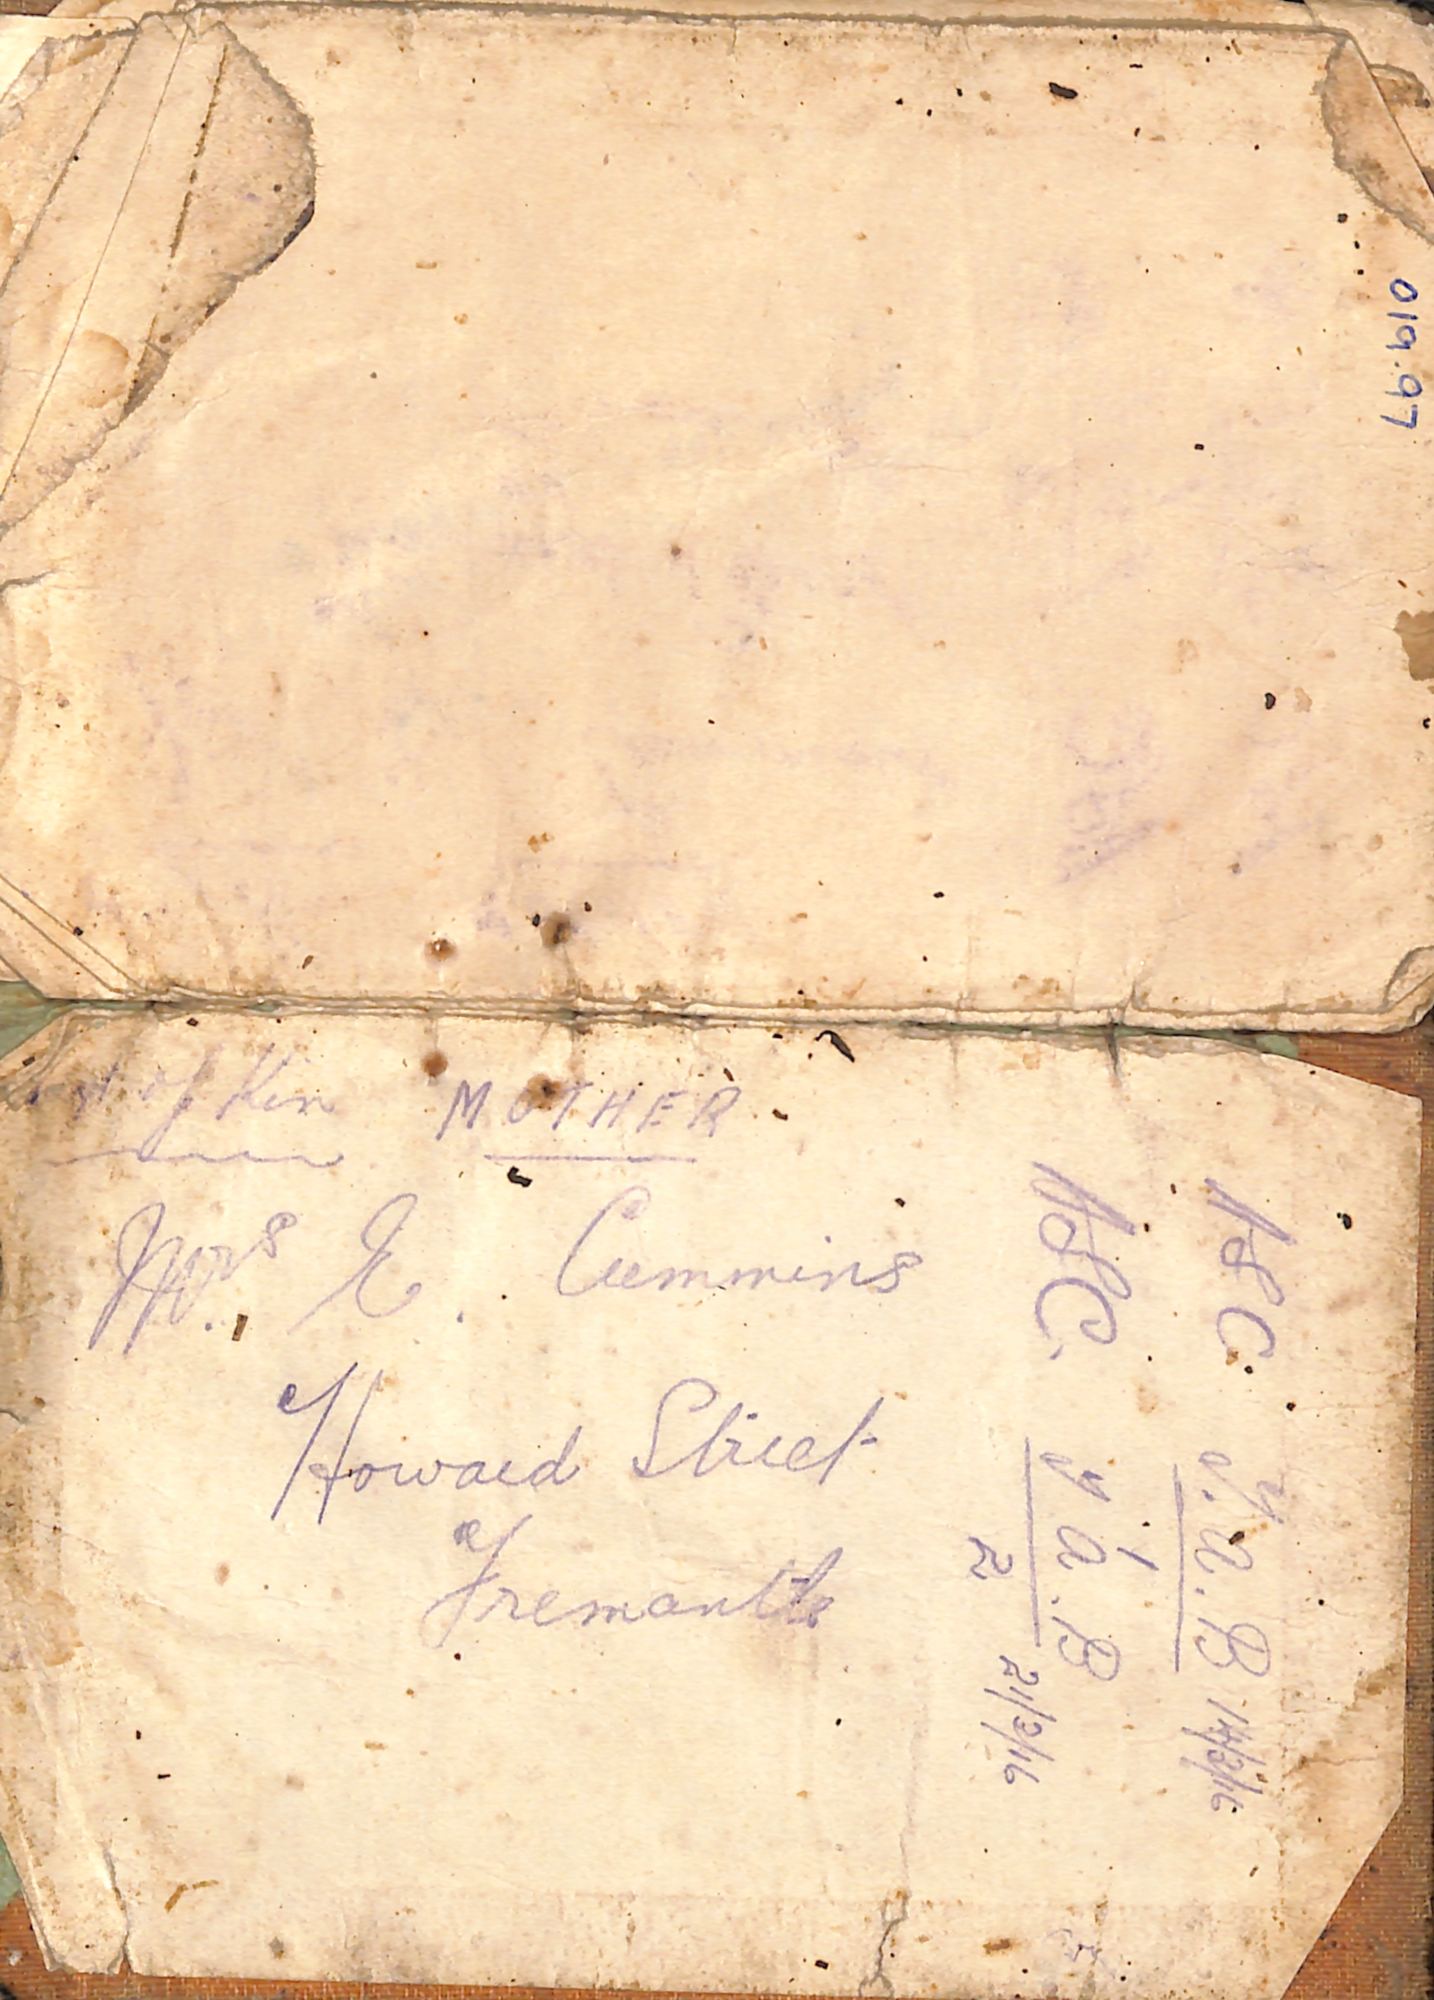 019.97
of Kin MOTHER
Mrs. E. Cummins
Howard Street
Fremantle
HSC. Y.a.B 14/3/16
HSC. Y.a.B 21/3/16
2